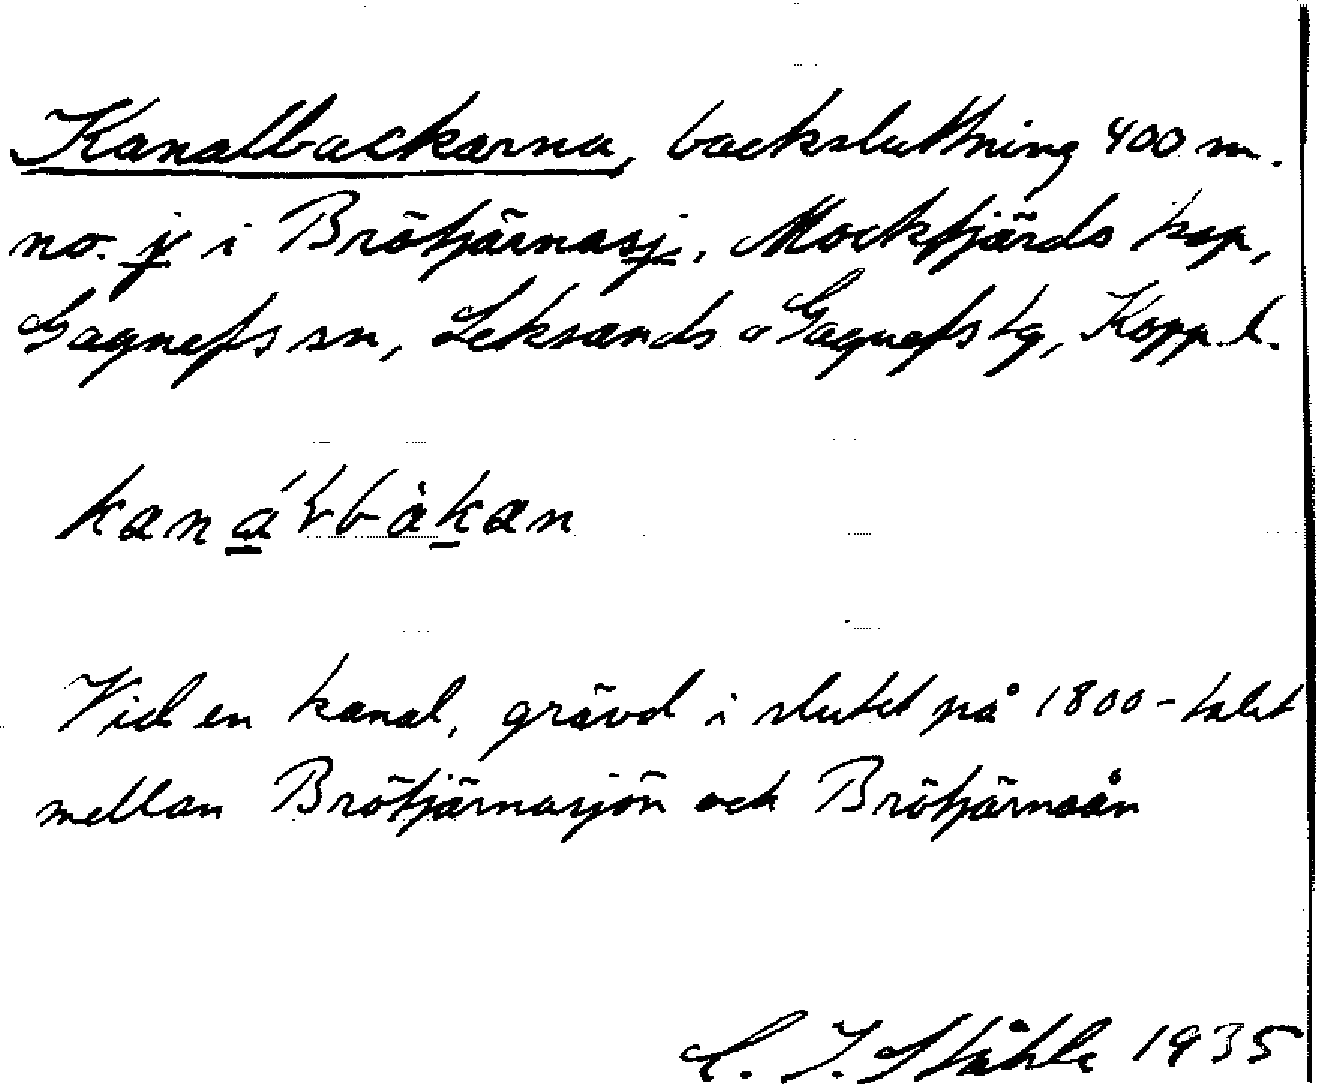 Kanalbackarna, backsluttning 400 m.
no. j i Brötjärnasj., Mockfjärds kap,
Gagnefs sn, Leksands o Gagnefs tg, Kopp. l.
kanáɫbàkan
Vid en kanal, grävd i slutet på 1800-talet
mellan Brötjärnasjön och Brötjärnaån
C. I. Ståhle 1935